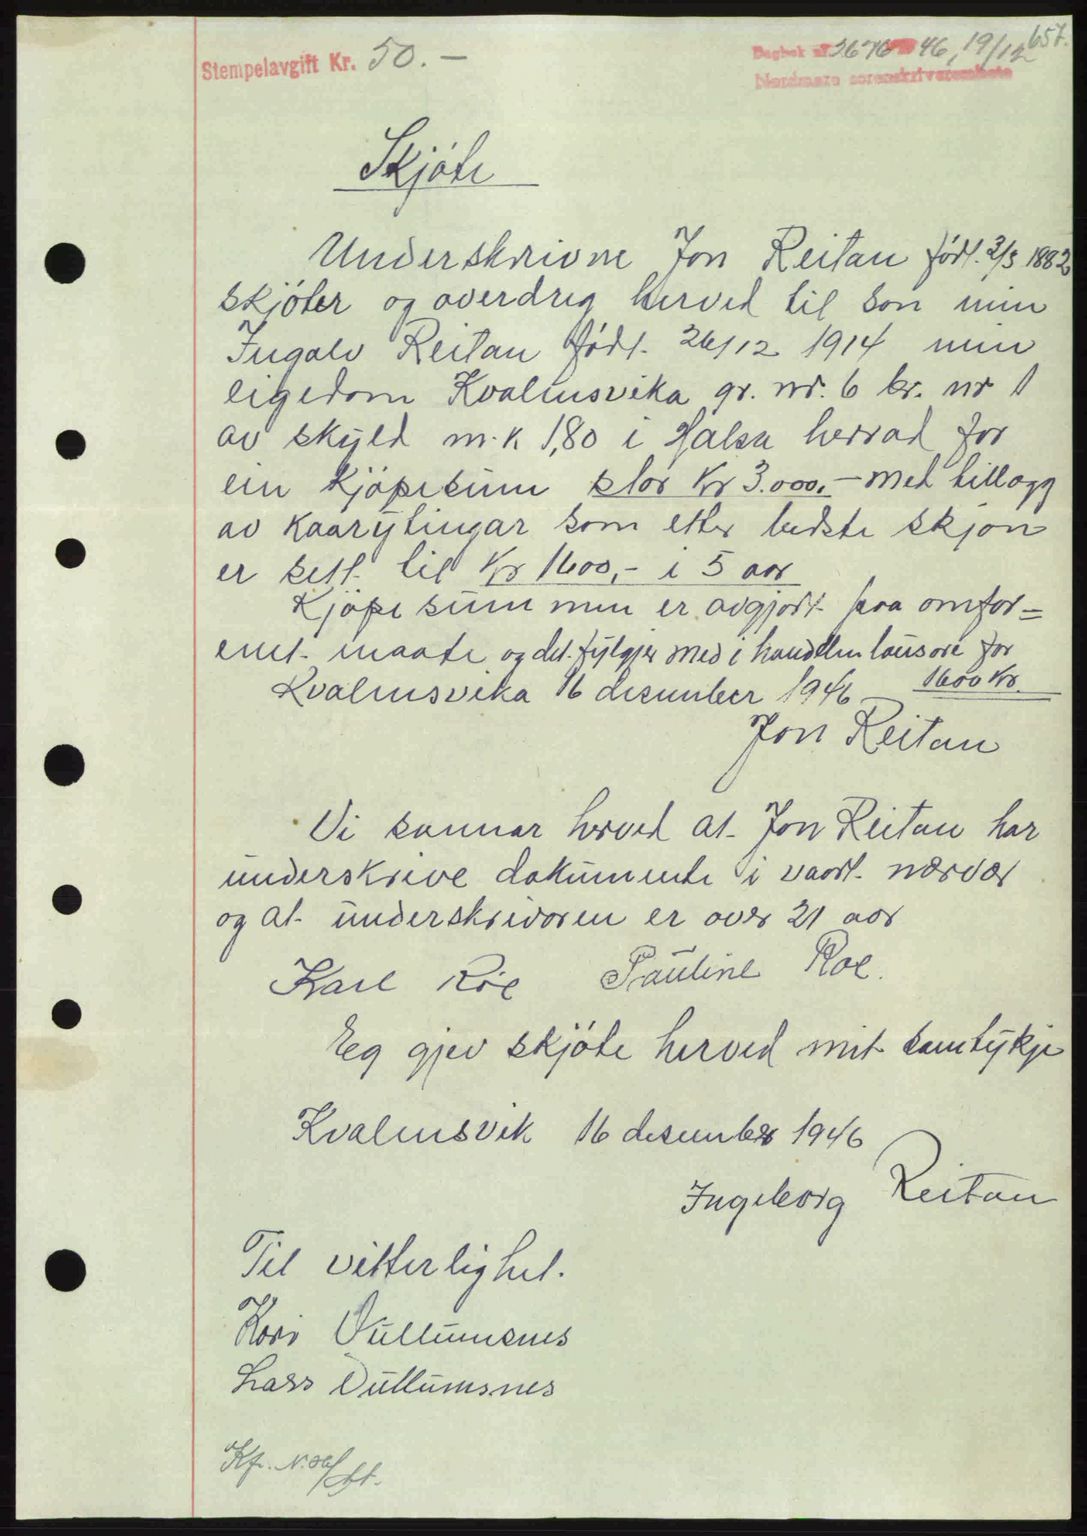 657.
Stempelavgift Kr. 50.-
Dagbok nr. 2676 46, 19/12
Nordmøre sorenskriverembete
Skjöte
Underskrivne Jon Reitan født. 2/5 1882
skjöter og overdreg herved til son min
Ingalv Reitan født. 26/12 1914 min
eigedom Kvalmsvika gr. nr. 6 br. nr 1
av skyld m.k 1,80 i Halsa herrad for
ein kjöpesum stor Kr 3.000,- med tillegg
av kaarytingar som etter bedste skjon
er sett til Kr 1600,- i 5 aar
Kjöpesummen er avgjort paa omfor=
enet maate og det fylgjer med i handelen lausöre for
1600 Kr.
Kvalmsvika 16 desember 1946
Jon Reitan
Vi sannar herved at Jon Reitan har
underskrive dokumente i vaart nærvær
og at underskrivaren er over 21 aar
Karl Röe Pauline Röe.
Eg gjev skjöte herved mit samtykje
Kvalmsvik 16 desember 1946
Ingeborg Reitan
Til vitterlighet.
Kari Vullumsnes
Lars Vullumsnes
Kfr.